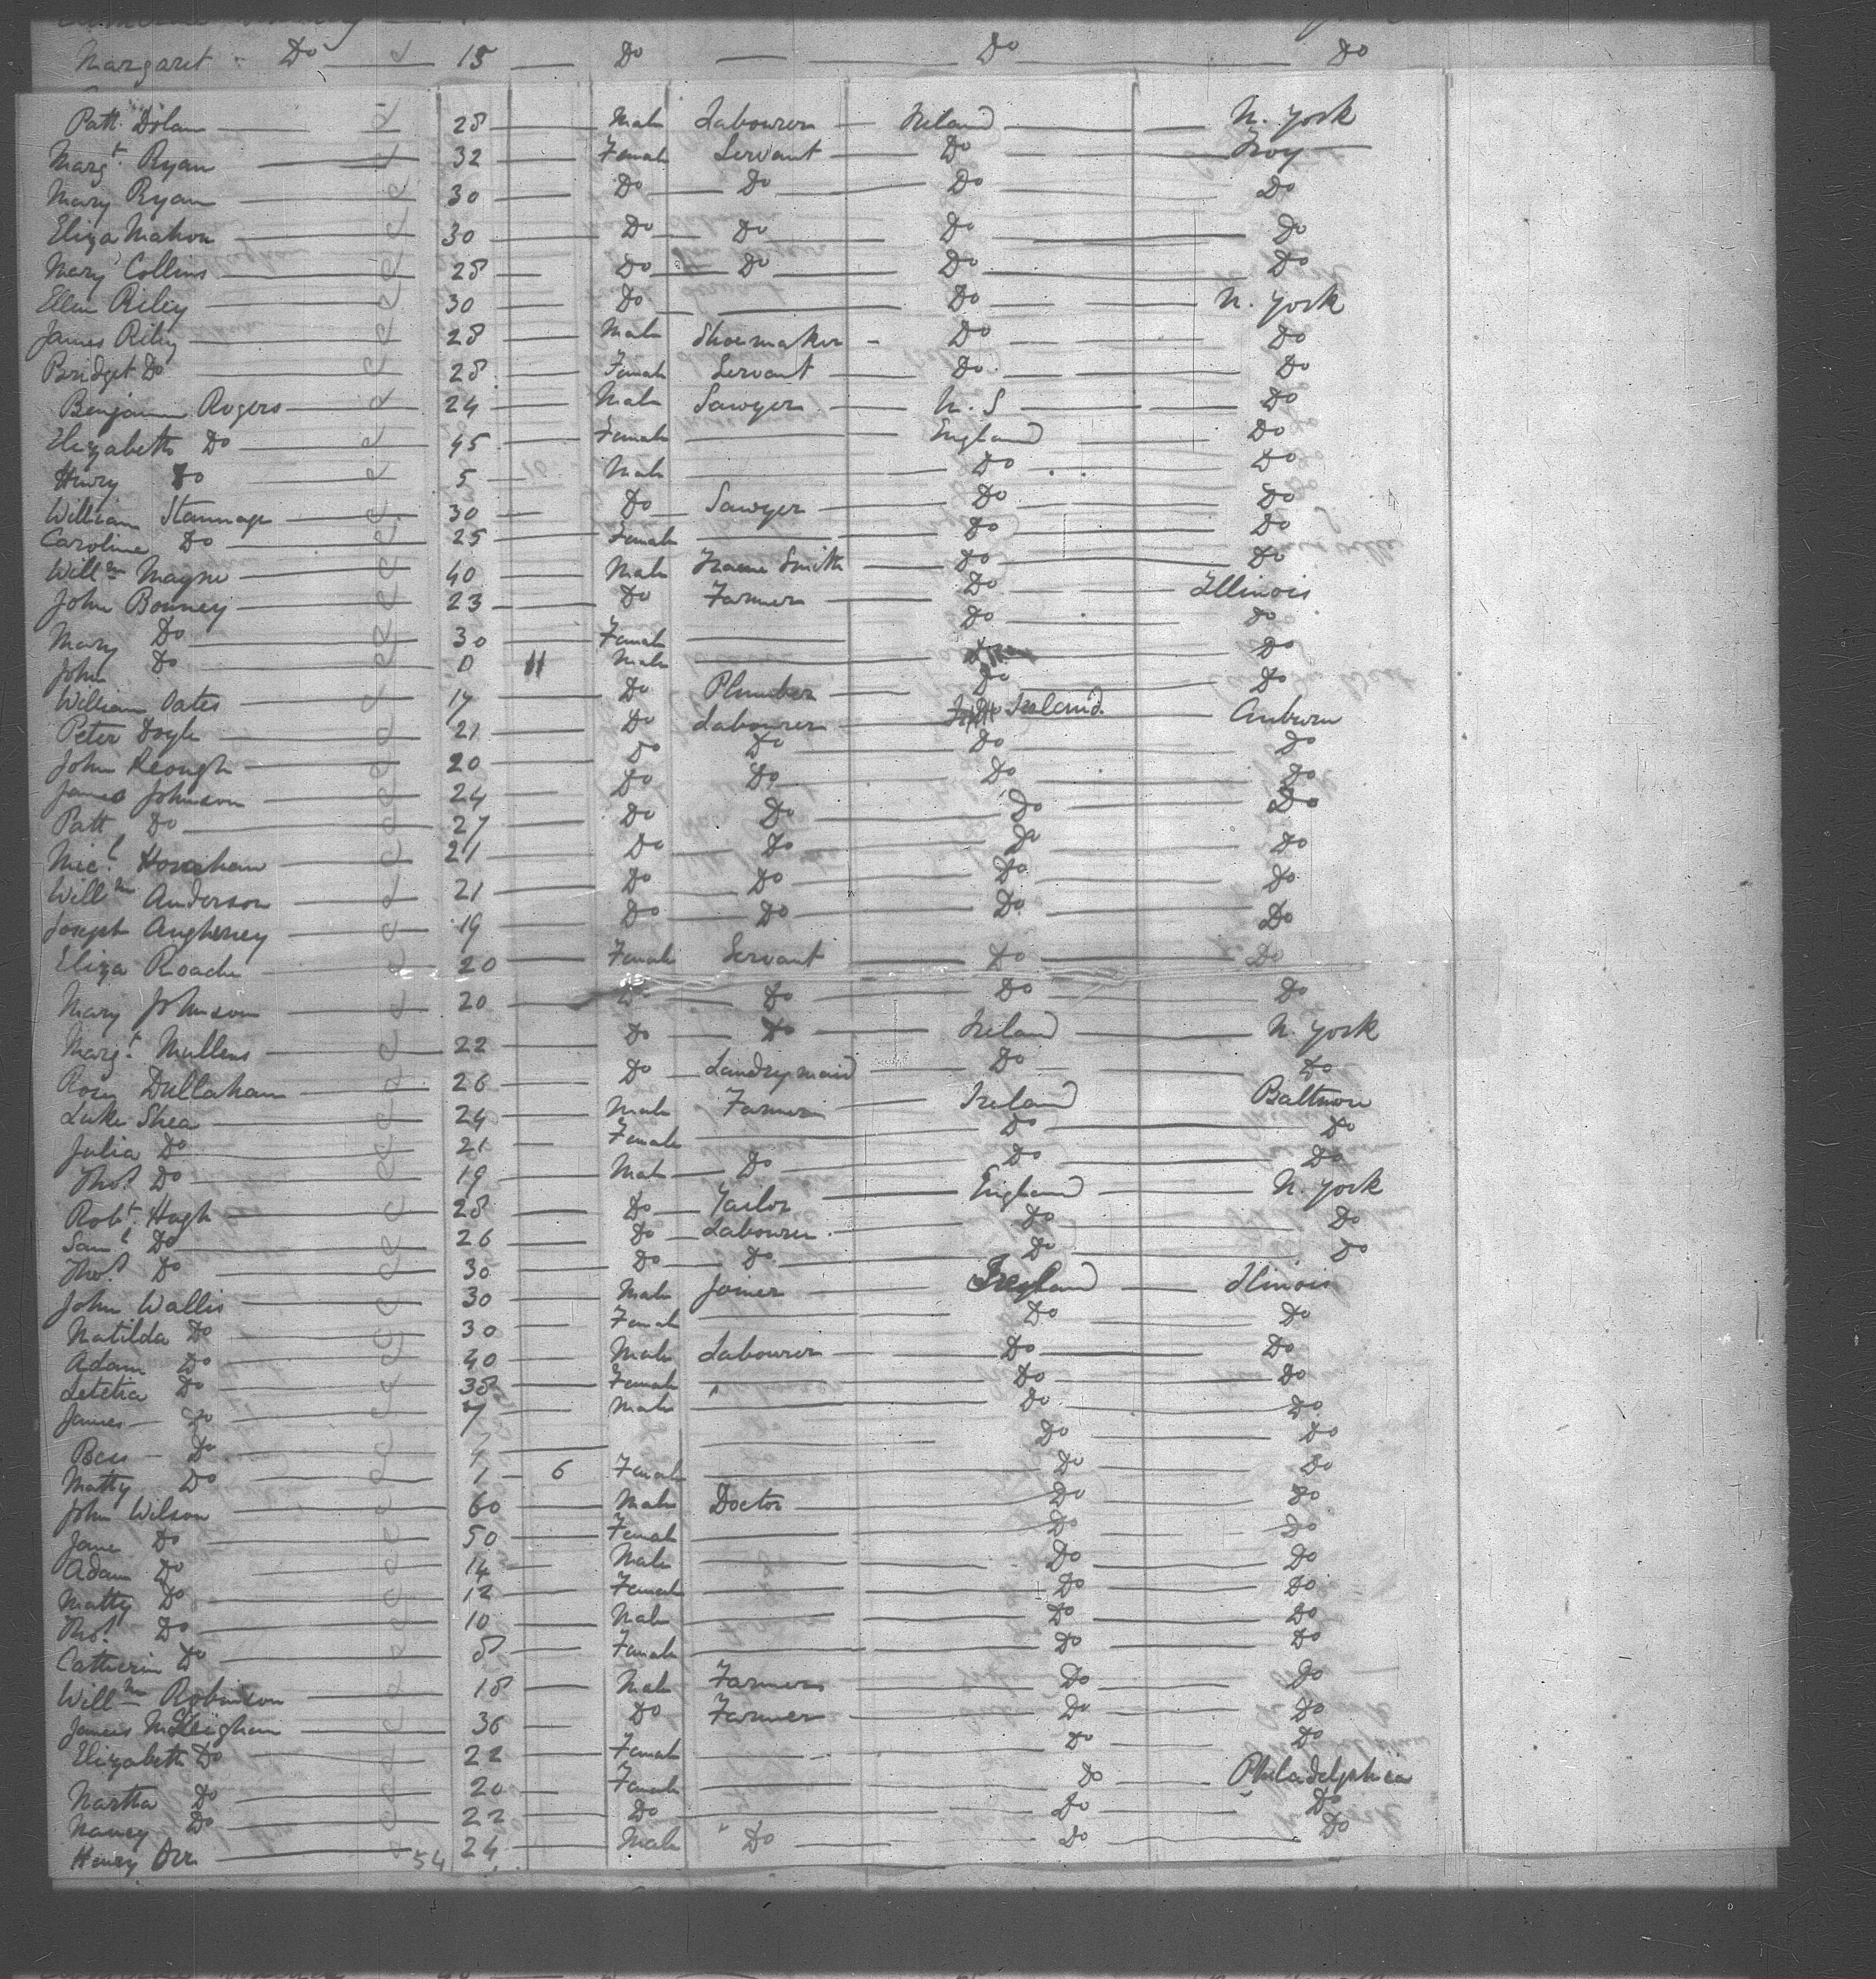 Margaret Do 15 Do Do Do
Patt. Dolan 28 Male Labourer Ireland N. York
Margt. Ryan 32 Female Servant Do Troy
Mary Ryan 30 Do Do Do Do
Eliza Mahon 30 Do Do Do Do
Mary Collins 28 Do Do Do Do
Ellen Riley 30 Do Do N. York
James Riley 28 Male Shoemaker Do Do
Bridget Do 28 Female Servant Do Do
Benjamin Rogers 24 Male Sawyer N. S Do
Elizabeth Do 45 Female England Do
Henry Do 5 Male Do Do
William Stannage 30 Do Sawyer Do Do
Caroline Do 25 Female Do Do
Willm Magne 40 Male Frame Smith Do Do
John Bonney 23 Do Farmer Do Illinois
Mary Do 30 Female Do Do
John Do 0 11 Male Do
William Oates 17 Do Plumber Do Do
Peter Doyle 21 Do Labourer Ireland. Auburn
John Keough 20 Do Do Do Do
James Johnson 24 Do Do Do Do
Patt Do 27 Do Do Do Do
Micl. 21 Do Do Do Do
Willm Anderson 21 Do Do Do Do
Joseph Angheney 19 Do Do Do Do
Eliza Roach 20 Female Servant Do Do
Mary Johnson 20 Do Do Do Do
Margt. Mullens 22 Do Do Ireland N. York
Rosey Dullaham 26 Do Landrymaid Do Do
Luke Shea 24 Male Farmer Ireland Baltmore
Julia Do 21 Female Do Do
Thos. Do 19 Male Do Do Do
Robt. Hugh 28 Do Tailor England N. York
Saml Do 26 Do Labourer Do Do
Thos. Do 30 Do Do Do Do
John Wallis 30 Male Joiner Ireland Ilinois
Matilda Do 30 Female Do Do
Adam Do 40 Male Labourer Do Do
Letetia Do 38 Female Do Do
James Do 7 Male Do Do
Bess Do 4 Do Do
Matty Do 1 6 Female Do Do
John Wilson 60 Male Doctor Do Do
Jane Do 50 Female Do Do
Adam Do 14 Male Do Do
Matty Do 12 Female Do Do
Thos. Do 10 Male Do Do
Catherin Do 8 Female Do Do
Willm Robinson 18 Male Farmer Do Do
James McSleigham 36 Do Farmer Do Do
Elizabeth Do 22 Female Do Do
Martha Do 20 Female Do Philadelphia
Nancy Do 22 Do Do Do
Henry Orr 54 24 Male Do Do Do